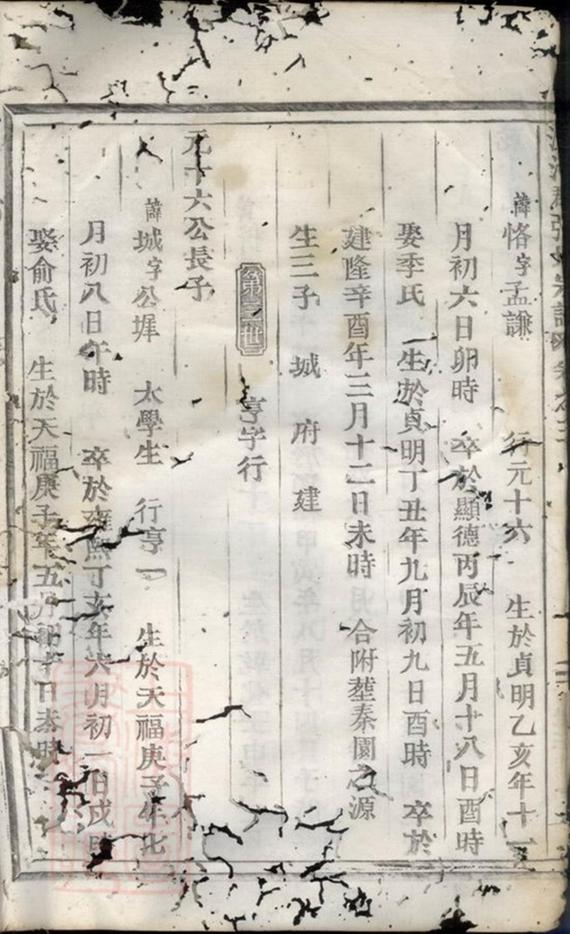 諱恪字孟謙 行元十六 生於貞明乙亥年十
月初六日卯時 卒於顯德丙辰年五月十八日酉時
娶季氏 生於貞明丁丑年九月初九日酉時 卒於
建隆辛酉年三月十二日未時 合附塟秦園之源
生三子 城 府 建
第三世 亨字行
元十六公長子
諱城字公墀 太學生 行亨一 生於天福庚子年
月初八日午時 卒於雍熙丁亥年六月初一日戌時
娶俞氏 生於天福庚子年五月